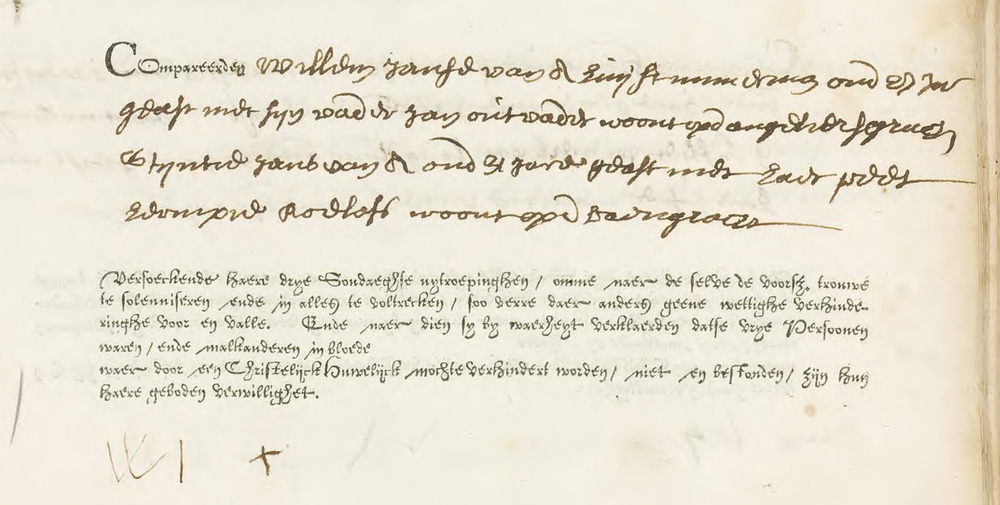 Compareerden Willem Janse van A huijstimmerman oud 27 Jar
geast met sijn vader Jan out vader woont opd angeliersgraft,
Stijntie Jans van A oud 21 Jare geast met haer peet
Hermpie Roelofs woont opd Baengraft
Versoeckende haere drye Sondaeghse uytroepinghen / omme naer de selve de voorsz. trouwe
te solenniseren ende in alles te voltrecken / soo verre daer anders geene wettighe verhinde-
ringhe voor en valle. Ende naer dien sy by waerheyt verklaerden datse vrye Persoonen
waren / ende malkanderen in bloede
waer door een Christelijck Huwelijck mochte verhindert worden / niet en bestonden / zijn hun
haere geboden verwillighet.
W I +